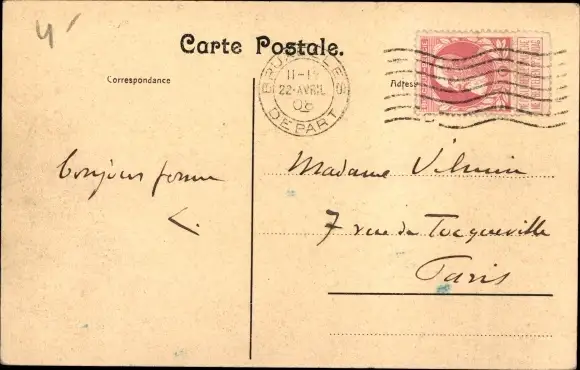 4
Carte Postale.
Correspondance
Adresse
BRUXELLES
11-12
22·AVRIL
08
DEPART
Bonjour
Madame Vilmin
7 rue de Tocqueville
Paris